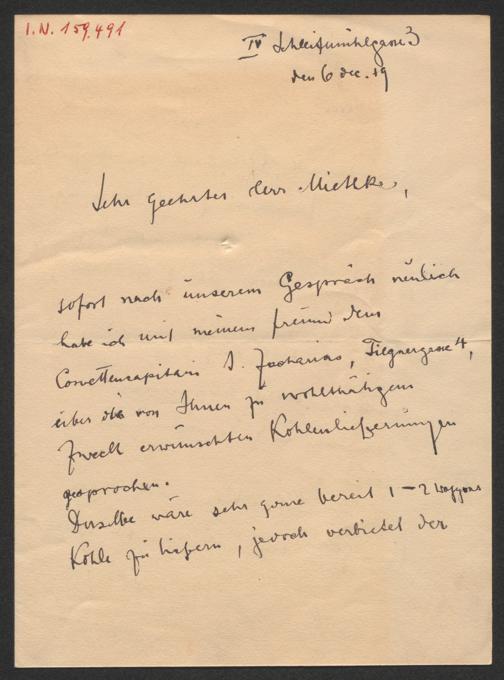 I.N. 159.491
IV Schleifmühlgasse 3
den 6 dec. 19
Sehr geehrter Herr Miethke,
sofort nach unserem Gespräch neulich
habe ich mit meinem freund dem
Corvettencapitän J. Zacharias, Tilgnergasse 4,
über die von Ihnen zu wohlthätigem
Zweck erwünschten Kohlenlieferungen
gesprochen.
Derselbe wäre sehr gerne bereit 1–2 Waggons
Kohle zu liefern, jedoch verbietet der